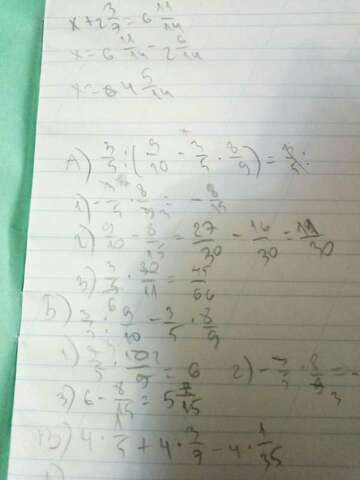 x+2 3/7 = 6 11/14
x = 6 11/14 - 2 6/14
x = 4 5/14
А) 3/5 : (9/10 - 3/5 · 8/9) =
1) - 3/5 · 8/9 = - 8/15
2) 9/10 - 8/15 = 27/30 - 16/30 = 11/30
3) · 30/11 =
Б) : 9/10 - 3/5 · 8/9
1) = 6 2) - 3/5 · 8/9 =
3) 6 - 8/15 = 5 7/15
В) 4 · 1/5 + 4 · 3/9 - 4 · 1/35